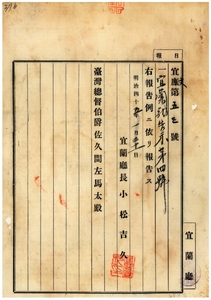 報日
宜庶第五七號
一宜蘭廳報告第四號
右報告例ニ依リ報告ス
明治四十五年一月三十一日
宜蘭廳長小松吉久
臺灣總督伯爵佐久間左馬太殿
宜蘭廳